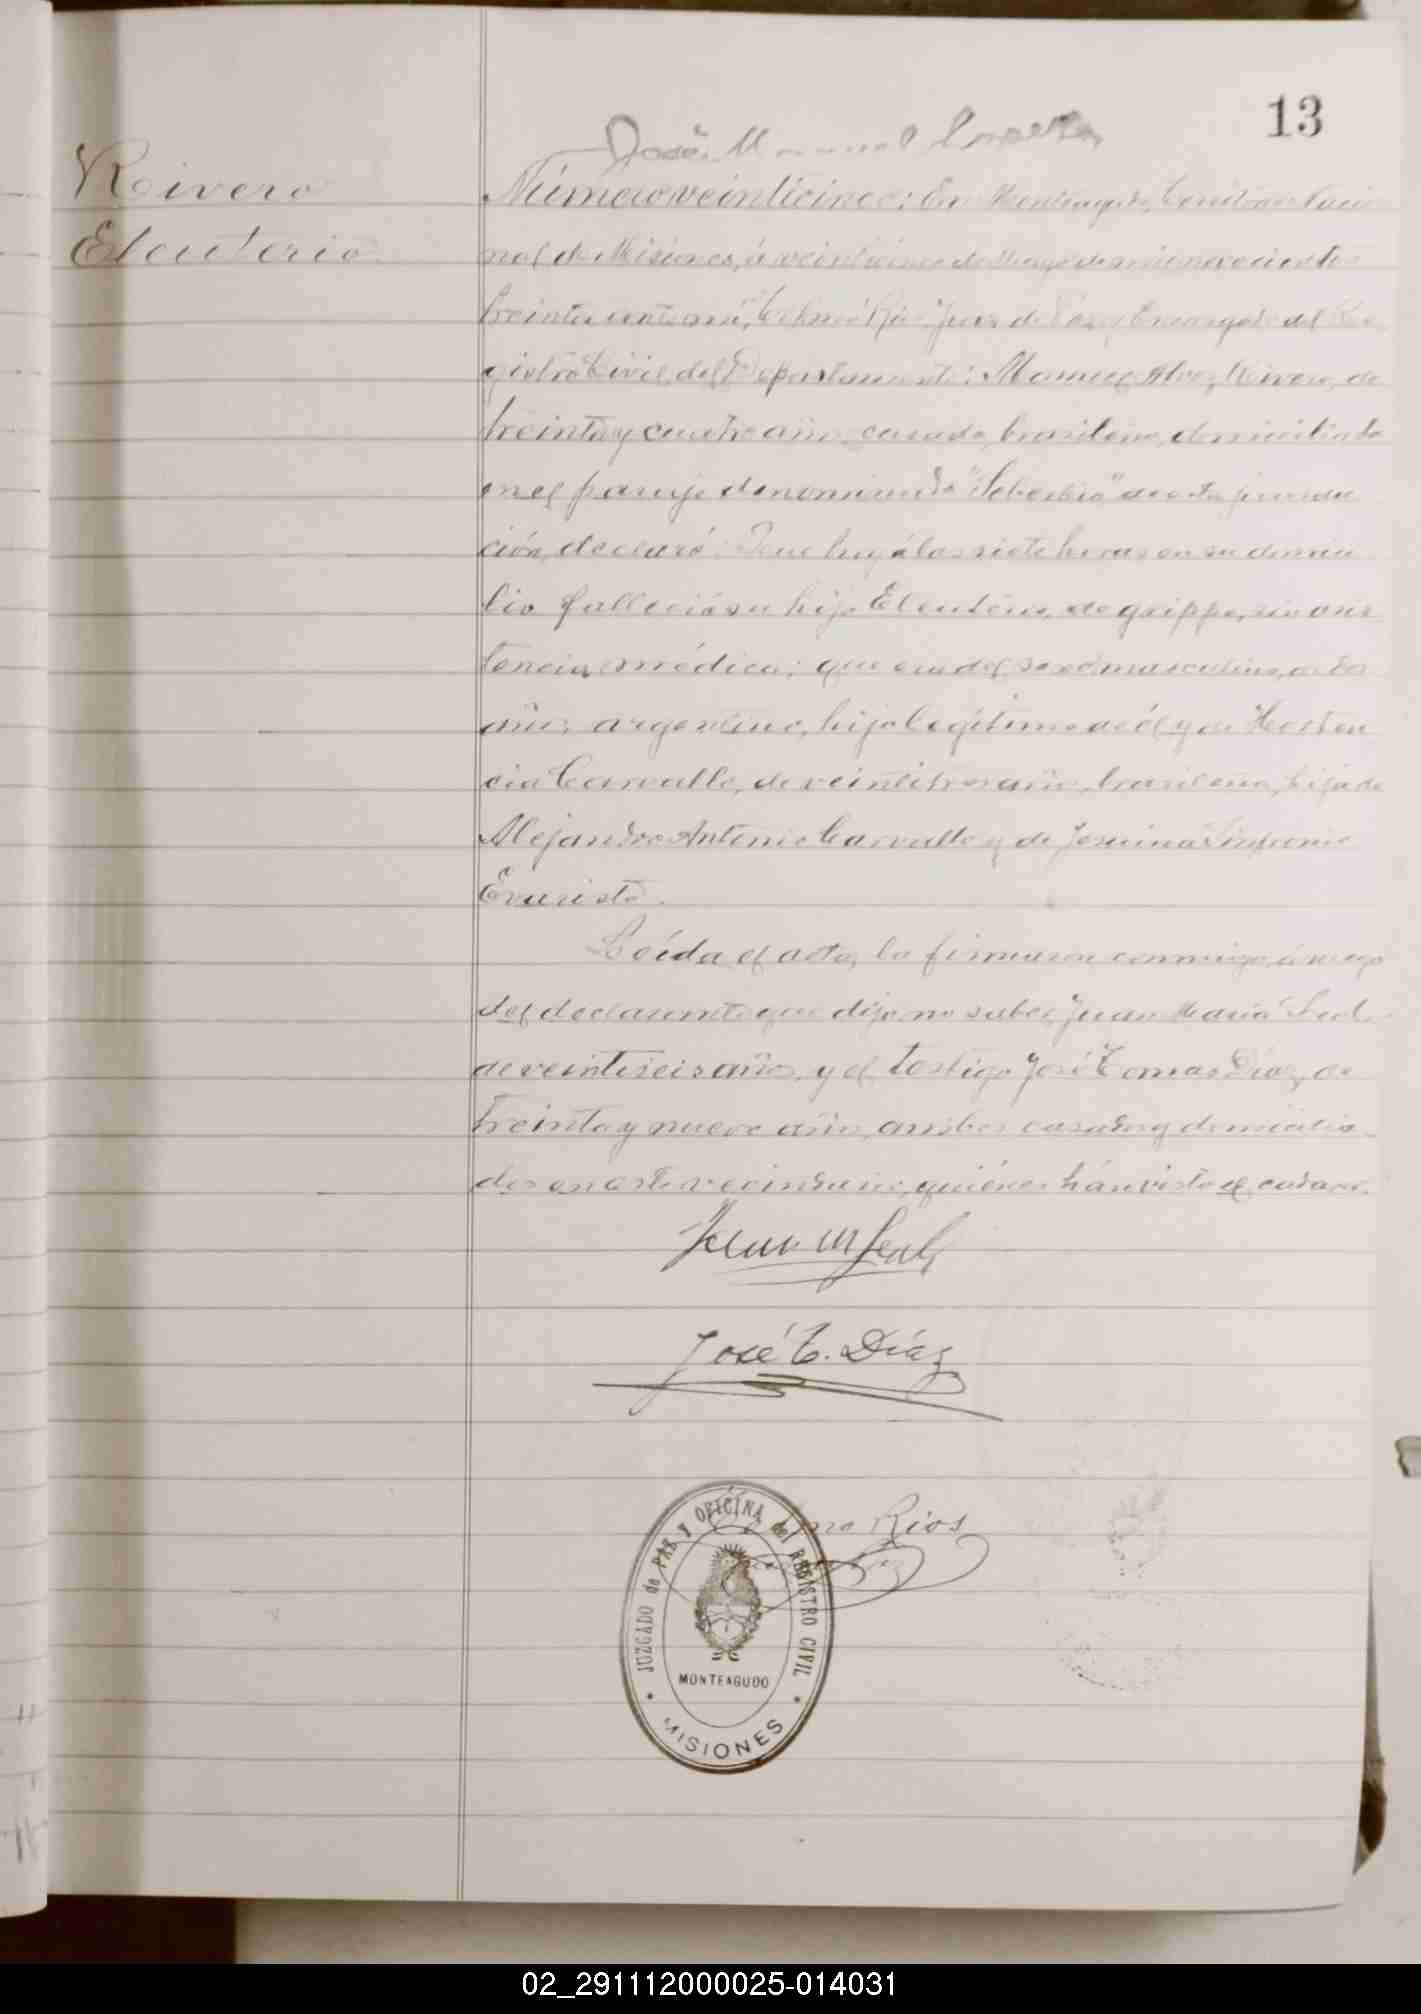 13
José Manuel
Rivero
Eleuterio
Número veinticinco: En Monteagudo, Territorio Nacio
nal de Misiones, á veinticinco de Mayo de mil novecientos
treinta ante mí, Juez de Paz y Encargado del Re
gistro Civil del Departamento: Manuel Alvez Rivero, de
treinta y cuatro años, casado, brasileño, domiciliado
en el paraje denominado "Soberbio" de esta jurisdic
ción, declaró: Que hoy á las siete horas en su domici
lio falleció su hijo Eleuterio, de grippe, sin asis
tencia médica; que era del sexo masculino, de dos
años, argentino, hijo legítimo de él y de Horten
cia Carvallo, de veintitres años, brasileña, hija de
Alejandro Antonio Carvallo y de Jesuina
Evaristo.
Leída el acta, la firmaron conmigo, á ruego
del declarante que dijo no saber, Juan María Leal,
de veintiseis años, y el testigo José Tomas Díaz, de
treinta y nueve años, ambos casados y domicilia
dos en este vecindario, quiénes hán visto el cadaver.
Juan M Leal
José T. Díaz
Rios
JUZGADO de PAZ y OFICINA del REGISTRO CIVIL
MONTEAGUDO
MISIONES
02_291112000025-014031